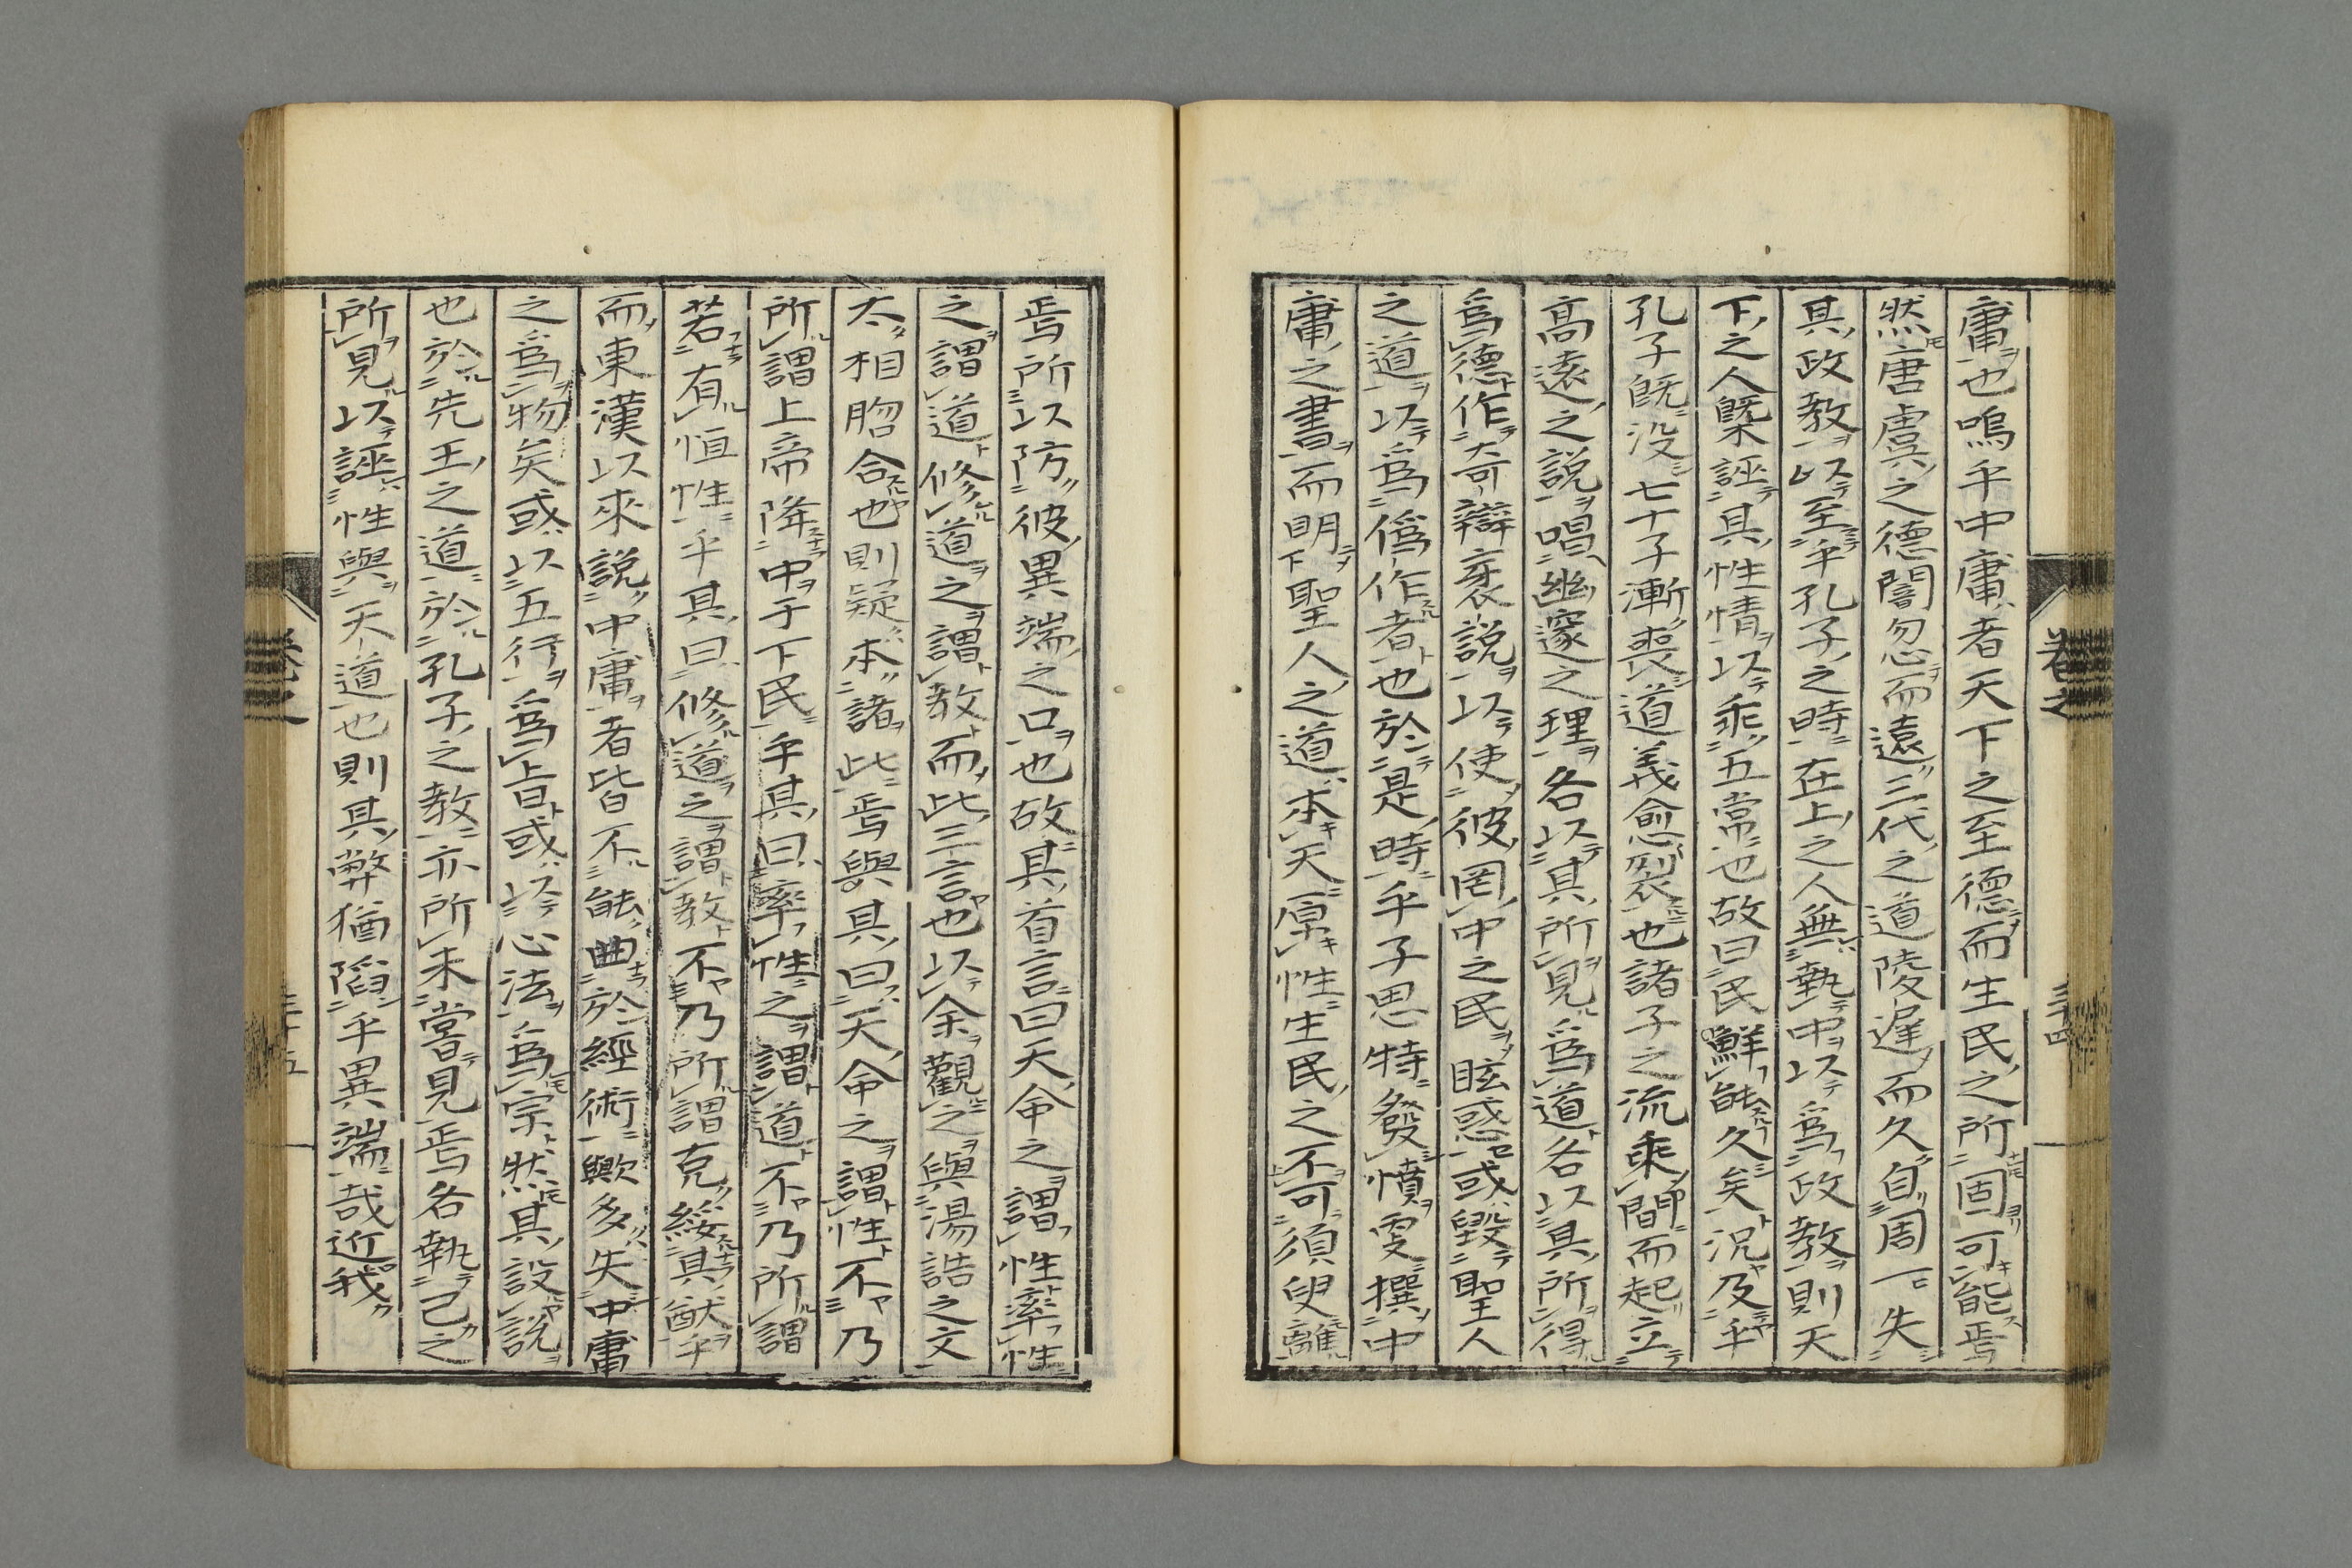 庸也嗚乎中庸者天下之至德而生民之所固可能焉
然唐虞之德闇忽而遠三代之道陵遲而久自周一失
其政教以至乎孔子之時在上之人無執中以爲政教則天
下之人槩誣其性情以乖五常也故曰民鮮能久矣況及乎
孔子既没七十子漸喪道義愈裂也諸子之流乘間而起立
高遠之説唱幽邃之理各以其所見爲道各以其所得
爲德作奇辯衺説以使彼罔中之民眩惑或毀聖人
之道以爲僞作者也於是時乎子思特發憤雯撰中
庸之書而明聖人之道本天原性生民之不可須臾離
卷之
三十四
焉所以防彼異端之口也故其首言曰天命之謂性率性
之謂道修道之謂教而此三言也以余觀之與湯誥之文
太相脗合也則疑本諸此焉與其曰天命之謂性不乃
所謂上帝降中于下民乎其曰率性之謂道不乃所謂
若有恒性乎其曰修道之謂教不乃所謂克綏其猷乎
而東漢以來説中庸者皆不能曲於經術歟多失中庸
之爲物矣或以五行爲旨或以心法爲宗然其設説
也於先王之道於孔子之教亦所未嘗見焉各執己之
所見以誣性與天道也則其弊猶陷乎異端哉近我
卷之
三十五